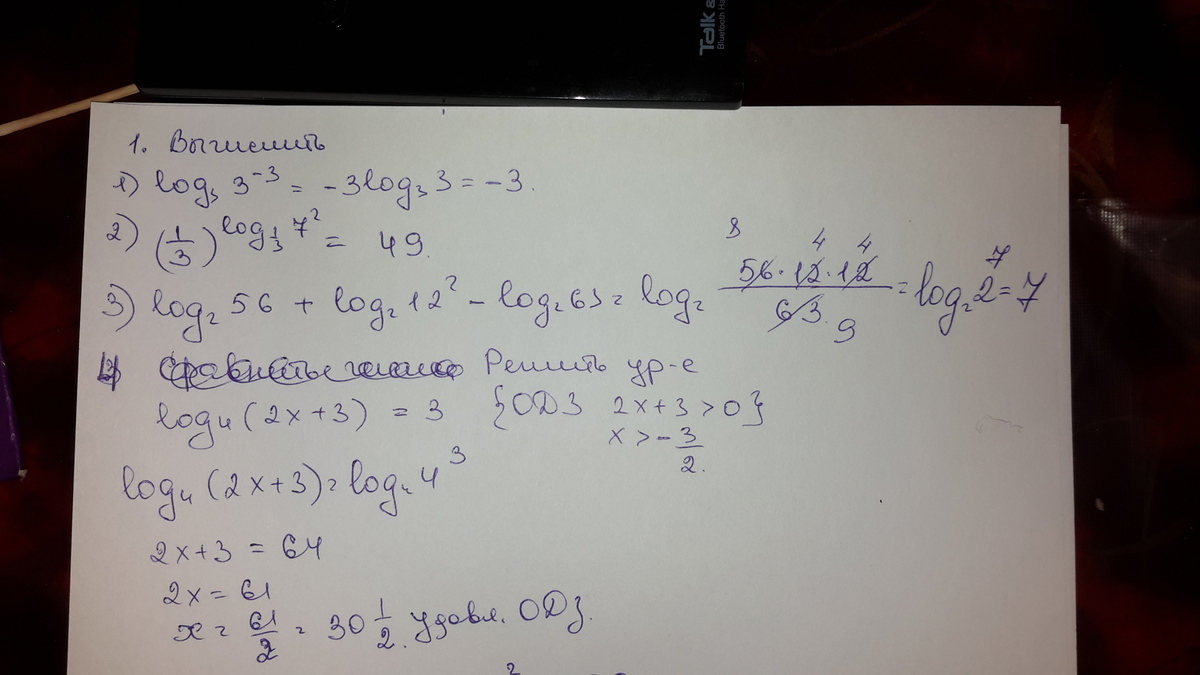 Talk &
Bluetooth Ha
1. Вычислить
1) log₃ 3⁻³ = -3log₃ 3 = -3.
2) (1/3)^(log_(1/3) 7²) = 49.
3) log₂ 56 + log₂ 12² - log₂ 63 = log₂ (56 · 12 · 12)/63 = log₂ 2⁷ = 7
8 4 4
9
Решить ур-е
log₄ (2x+3) = 3 {ОДЗ 2x+3 > 0}
x > -3/2.
log₄ (2x+3) = log₄ 4³
2x+3 = 64
2x = 61
x = 61/2 = 30 1/2. удовл. ОДЗ.
2